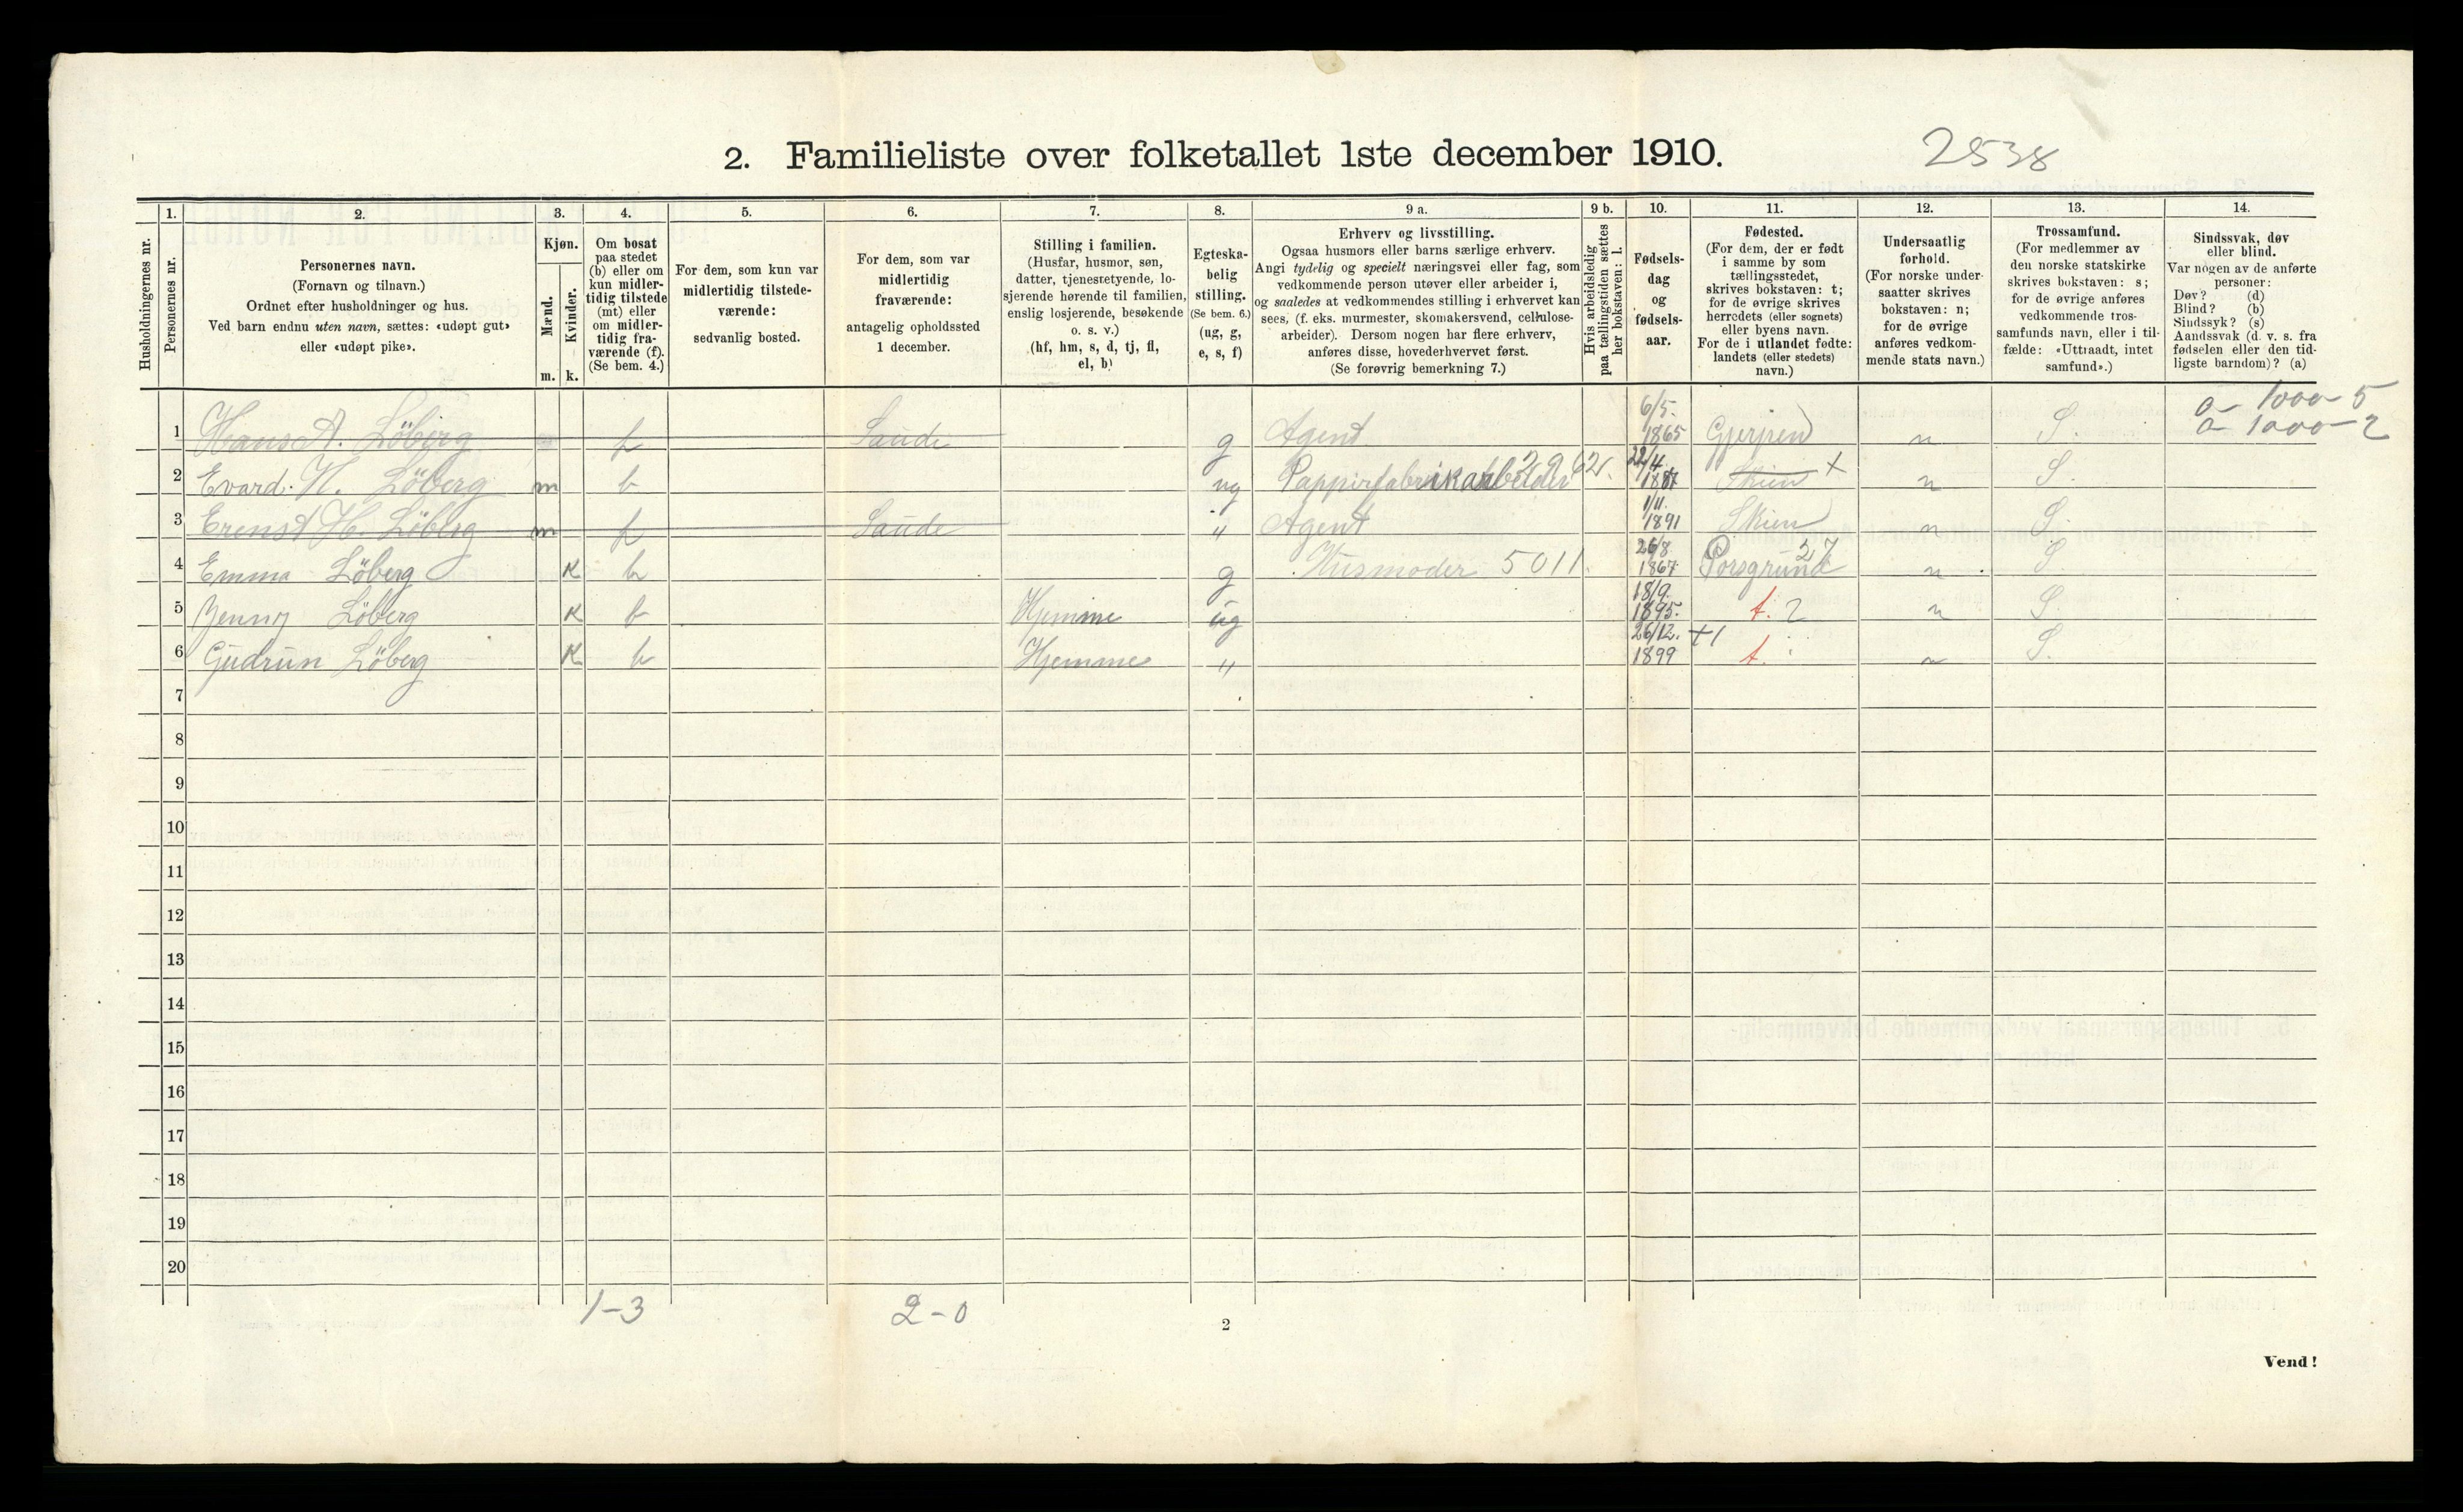 2. Familieliste over folketallet 1ste december 1910.
2538
1. 2. 3. 4. 5. 6. 7. 8. 9 a. 9 b. 10. 11. 12. 13. 14.
Husholdningernes nr.
Personernes nr.
Personernes navn.
(Fornavn og tilnavn.)
Ordnet efter husholdninger og hus.
Ved barn endnu uten navn, sættes: «udøpt gut»
eller «udøpt pike».
Kjøn.
Mænd.
Kvinder.
m. k.
Om bosat
paa stedet
(b) eller om
kun midler-
tidig tilstede
(mt) eller
om midler-
tidig fra-
værende (f).
(Se bem. 4.)
For dem, som kun var
midlertidig tilstede-
værende:
sedvanlig bosted.
For dem, som var
midlertidig
fraværende:
antagelig opholdssted
1 december.
Stilling i familien.
(Husfar, husmor, søn,
datter, tjenestetyende, lo-
sjerende hørende til familien,
enslig losjerende, besøkende
o. s. v.)
(hf, hm, s, d, tj, fl,
el, b)
Egteska-
belig
stilling.
(Se bem. 6.)
(ug, g,
e, s, f)
Erhverv og livsstilling.
Ogsaa husmors eller barns særlige erhverv.
Angi tydelig og specielt næringsvei eller fag, som
vedkommende person utøver eller arbeider i,
og saaledes at vedkommendes stilling i erhvervet kan
sees, (f. eks. murmester, skomakersvend, cellulose-
arbeider). Dersom nogen har flere erhverv,
anføres disse, hovederhvervet først.
(Se forøvrig bemerkning 7.)
Hvis arbeidsledig
paa tællingstiden sættes
her bokstaven: l.
Fødsels-
dag
og
fødsels-
aar.
Fødested.
(For dem, der er født
i samme by som
tællingsstedet,
skrives bokstaven: t;
for de øvrige skrives
herredets (eller sognets)
eller byens navn.
For de i utlandet fødte:
landets (eller stedets)
navn.)
Undersaatlig
forhold.
(For norske under-
saatter skrives
bokstaven: n;
for de øvrige
anføres vedkom-
mende stats navn.)
Trossamfund.
(For medlemmer av
den norske statskirke
skrives bokstaven: s;
for de øvrige anføres
vedkommende tros-
samfunds navn, eller i til-
fælde: «Uttraadt, intet
samfund».)
Sindssvak, døv
eller blind.
Var nogen av de anførte
personer:
Døv? (d)
Blind? (b)
Sindssyk? (s)
Aandssvak (d. v. s. fra
fødselen eller den tid-
ligste barndom)? (a)
a- 1000-5
a- 1000-2
1 Hans A. Löberg f Saude g Agent 6/5. 1865 Gjerpen n S.
2 Evard. H. Löberg m b ug Pappirfabrikarbeider 22/4 1887 Skien + n S.
3 Erenst H. Löberg m f Saude " Agent 1/11. 1891 Skien n S.
4 Emma Löberg K b g Husmoder 5011. 26/8 1867 Porsgrund 27 n S
5 Jenny Löberg K b Hjemme ug 18/9. 1895. t. 2 n S.
6 Gudrun Löberg K b Hjemme " 26/12. 1899 +1 t. n S.
7
8
9
10
11
12
13
14
15
16
17
18
19
20
1-3
2-0
2
Vend!